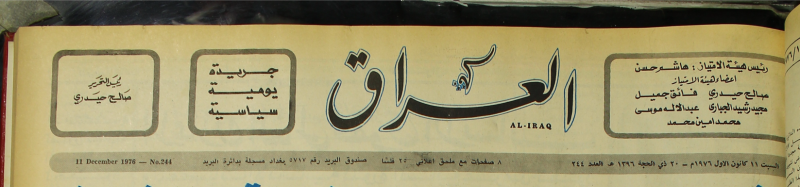 رئيس هيئة الامتياز : هاشم حسن
اعضاء هيئة الامتياز
صالح حيدري فائق جميل
مجيد رشيد الجباري عبدالاله موسى
محمد امين محمد
العراق
AL-IRAQ
جريدة
يومية
سياسية
صالح حيدري
السبت ١١ كانون الاول ١٩٧٦م – ٢٠ ذي الحجة ١٣٩٦ هـ العدد ٢٤٤
٨ صفحات مع ملحق اعلاني ٢٥ فلسا
صندوق البريد رقم ٥٧١٧ بغداد مسجلة بدائرة البريد
11 December 1976 — No.244